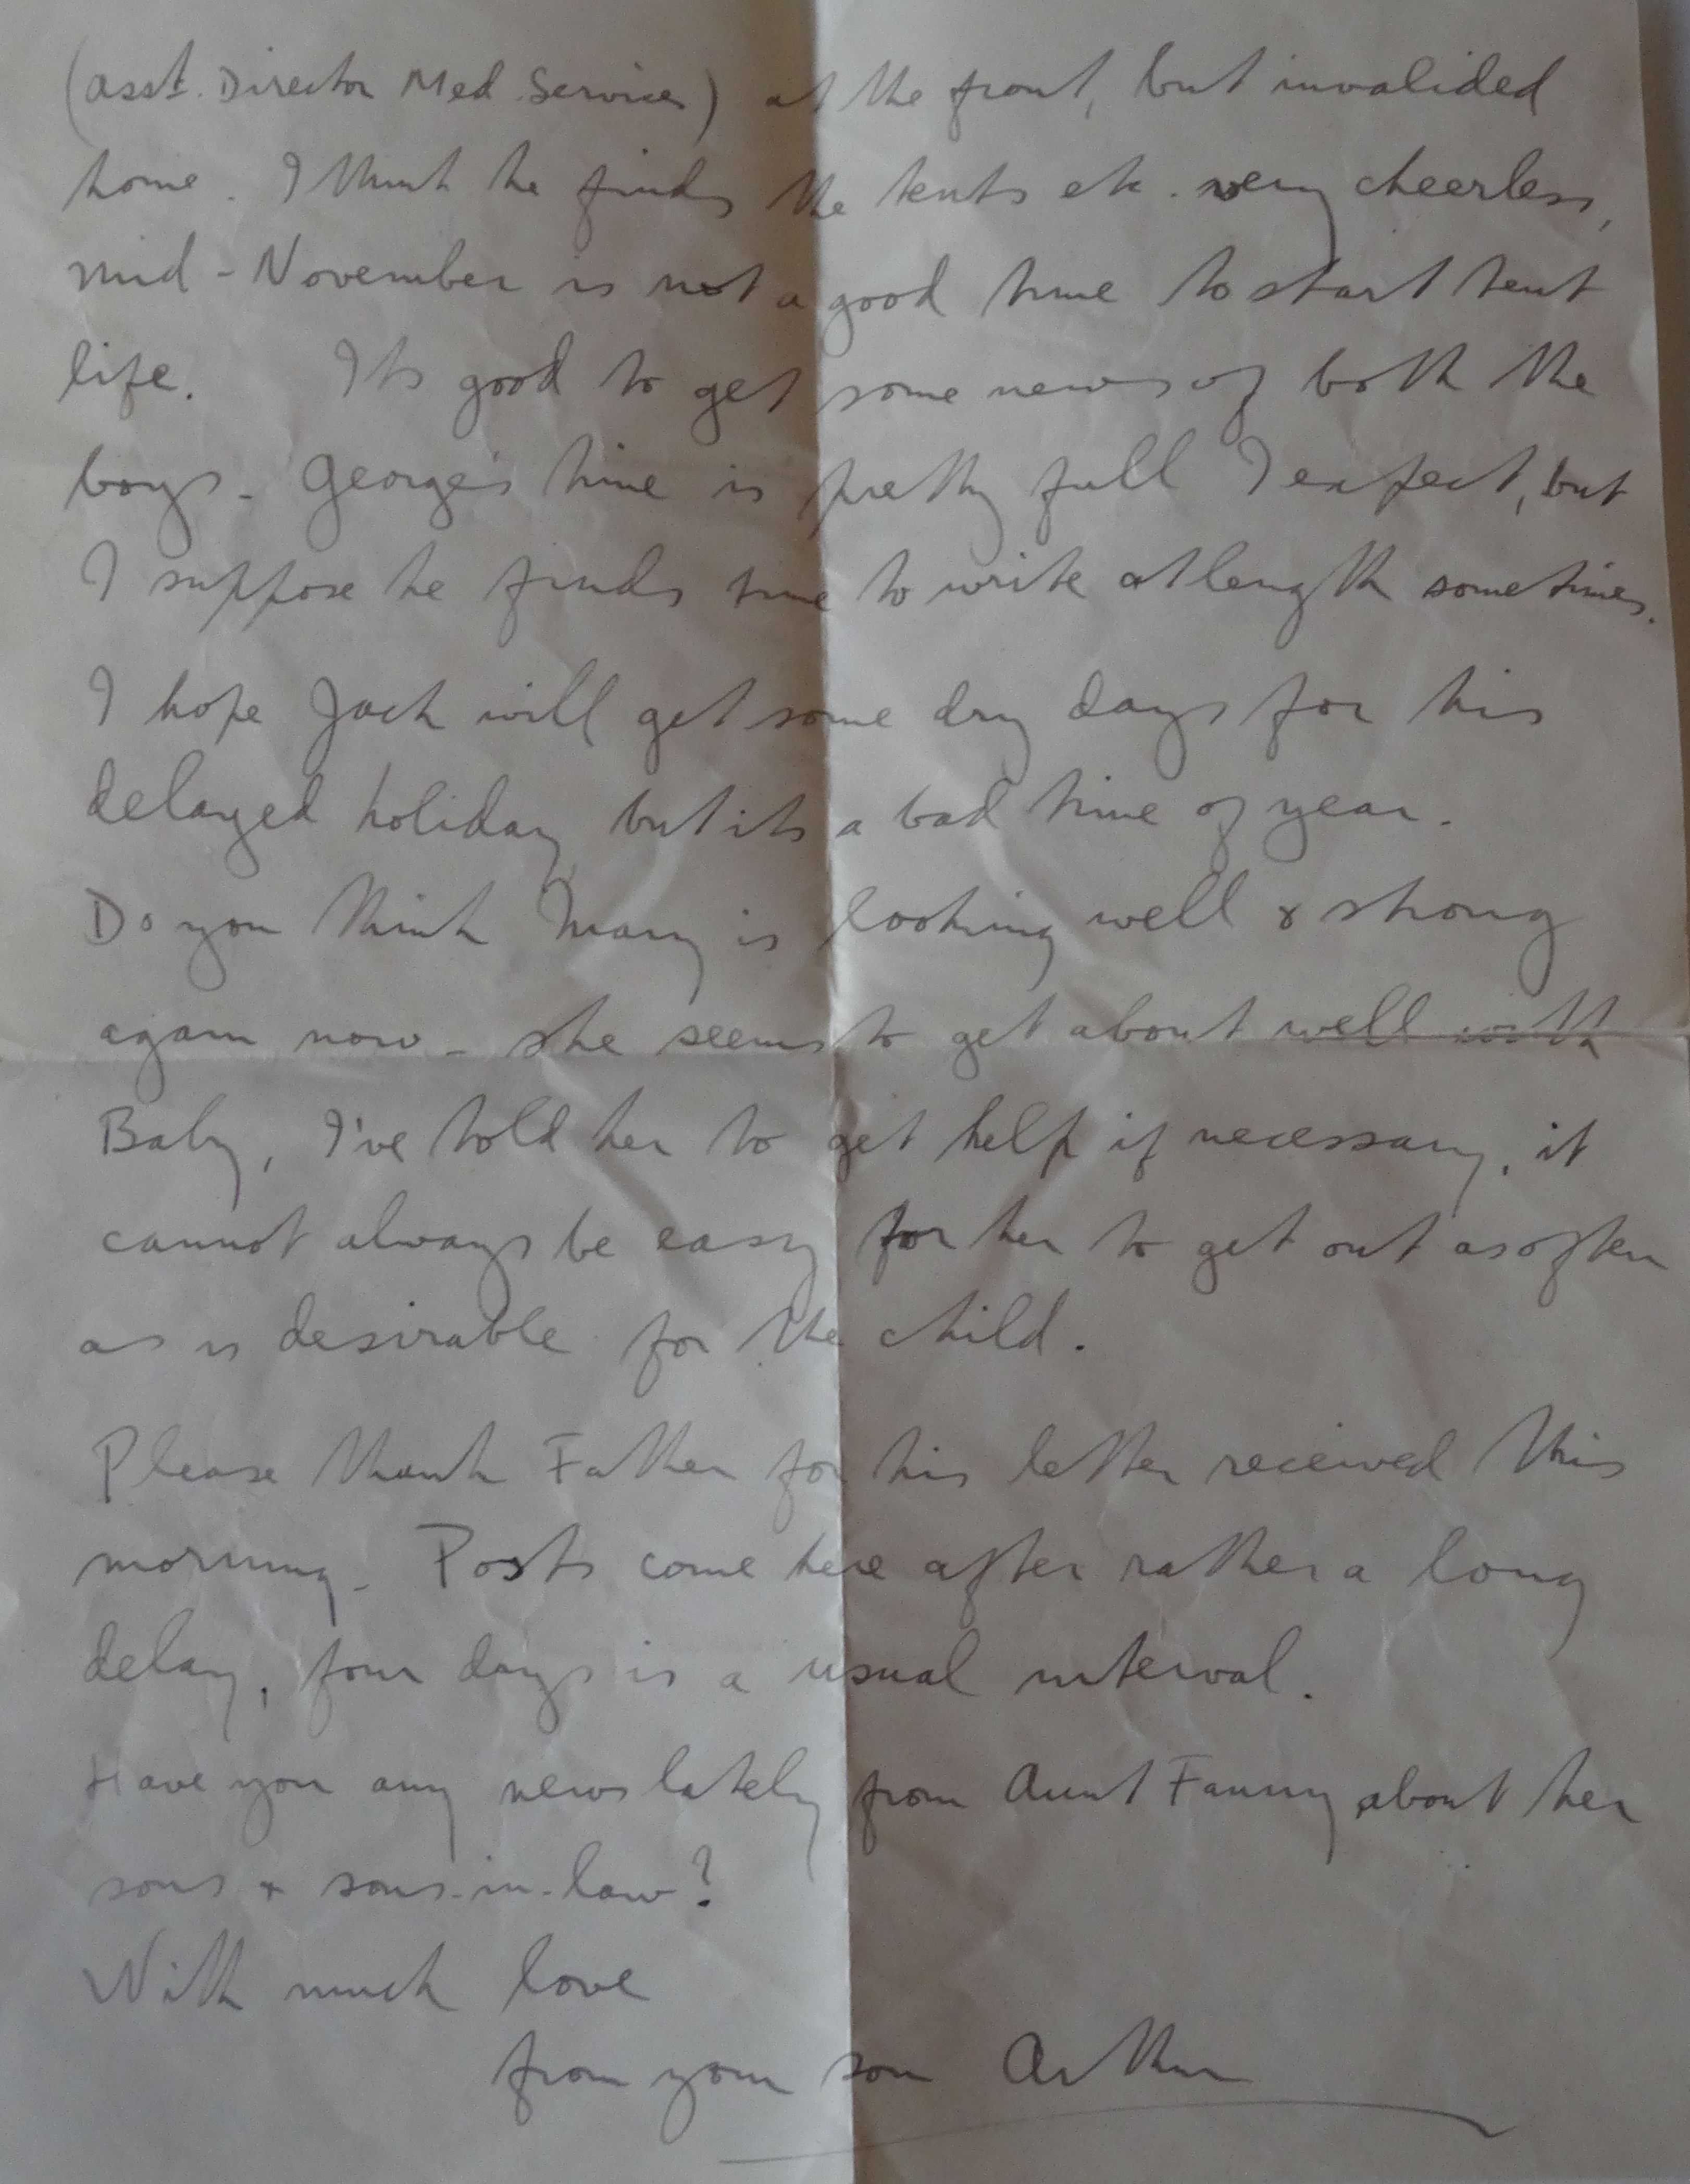 (Asst. Director Med. Services) at the front, but invalided
home. I think he finds the tents etc. very cheerless,
mid-November is not a good time to start tent
life. Its good to get some news of both the
boys - George's time is pretty full I expect, but
I suppose he finds time to write at length sometimes.
I hope Jack will get some dry days for his
delayed holiday, but its a bad time of year.
Do you think Mary is looking well & strong
again now - she seems to get about well with
Baby, I've told her to get help if necessary, it
cannot always be easy for her to get out as often
as is desirable for the child.
Please thank Father for his letter received this
morning - Posts come here after rather a long
delay, four days is a usual interval.
Have you any news lately from Aunt Fanny about her
sons & sons-in-law?
With much love
from your son Arthur